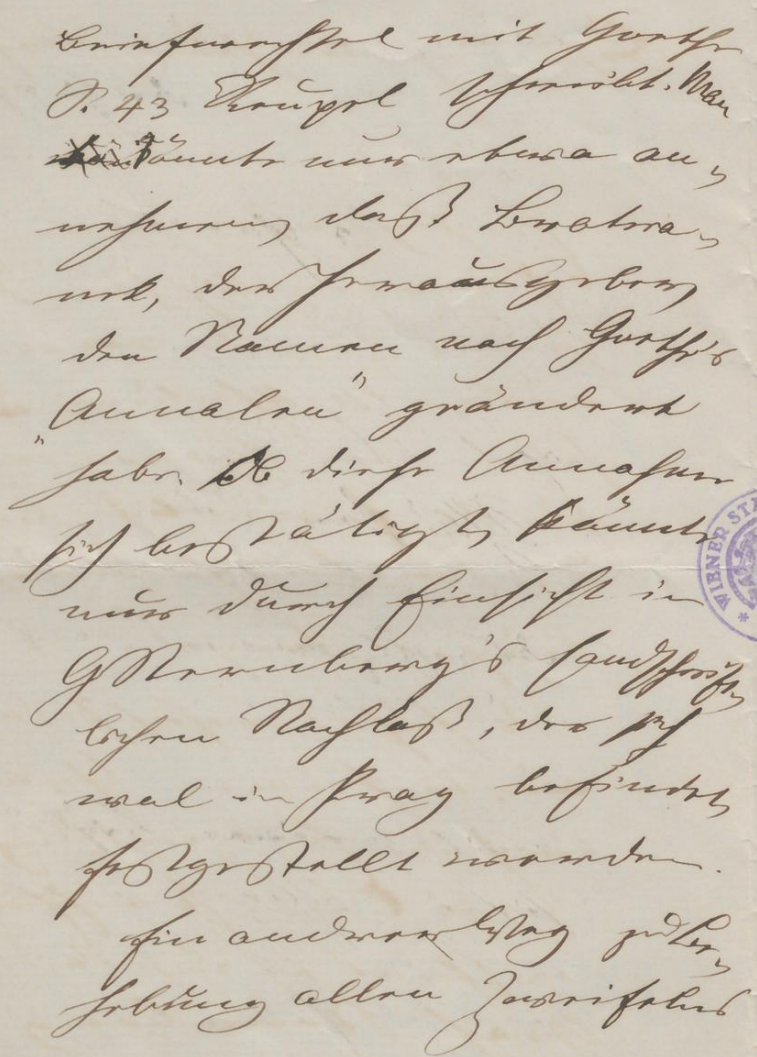 Briefwechsel mit Goethe
S. 43 Knupel schreibt. Man
könnte nur etwa an-
nehmen, daß Bratra-
nek, der Herausgeber,
den Namen nach Goethe's
„Annalen" geändert
habe. Ob diese Annahme
sich bestätigt, könnte
nur durch Einsicht in
G Sternberg's handschrift-
lichen Nachlaß, der sich
wol in Prag befindet,
festgestellt werden.
Ein anderer Weg zu Be-
hebung allen Zweifelns
WIENER STA